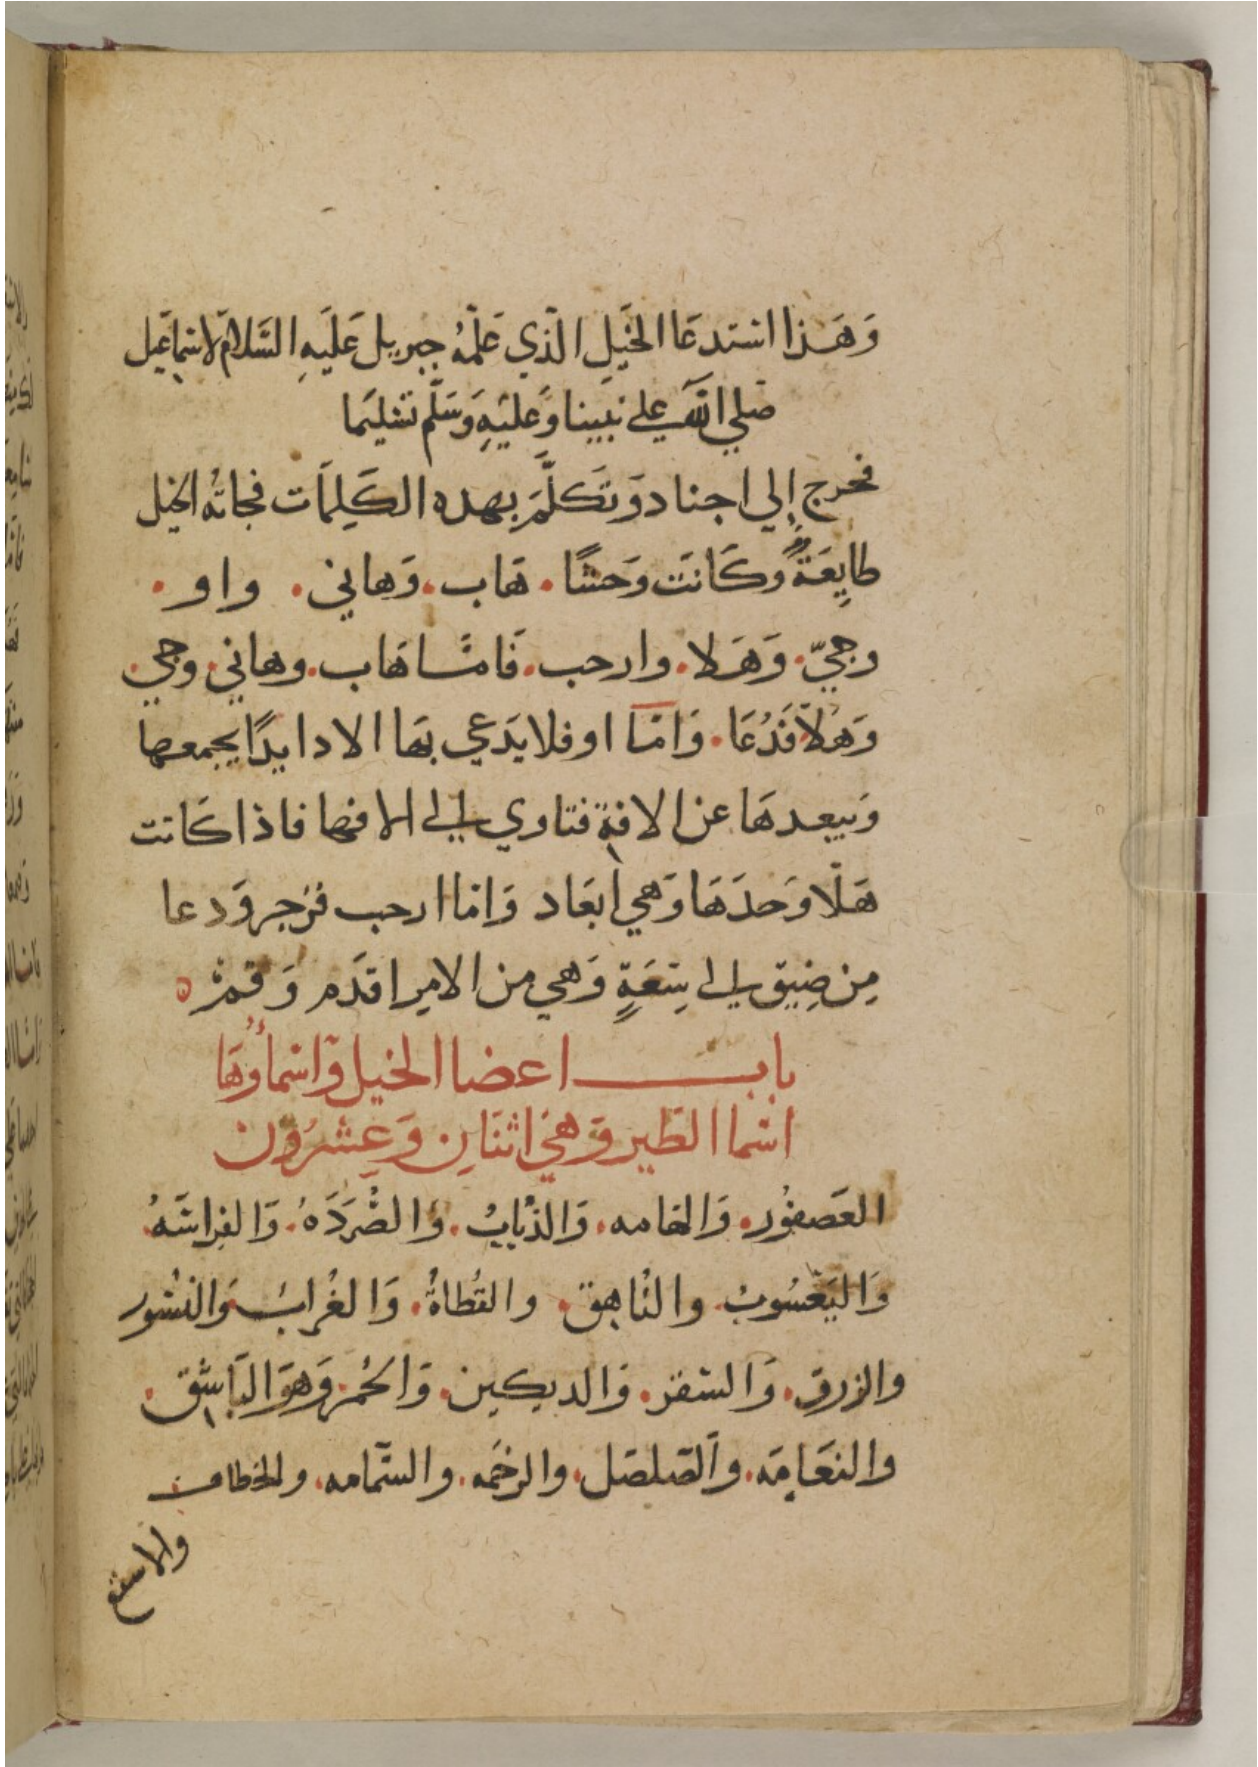 وَهَذا استدعَا الخَيلِ الّذي عَلّمهُ جبريل عَلَيهِ السَّلامُ لاسماعيل
صلي الله علي نَبينا وَعليَهِ وَسَلَّم تسْليَما
فخرج إلي اجنا دوَتَكلَّمَ بهده الكَلِمَات فجاته الخيل
طايِعَةً وكَانَت وَحشًا هَاب وَهابي واو
وهجيّ وَهَلا وارحب فَامّا هَاب وهابي وهجي
وَهَلاّ فَدُعَا وَامّا او فلا يَدعي بهَا الا دايدًا يجمعها
وَيبعدهَا عن الافة فتاوي إلي الافها فاذا كَانت
هَلّا وَحدَهَا وَهي أبعَاد وَاما ارحب فزجر وَدعا
مِن ضِيق إلي سِعَةٍ وَهي من الامر اقدَم وَقمْ
باب اعضا الخيل وَاسْماوُهَا
اسْما الطَير وَهيَ اثنَانِ وَعِشرُون
العَصفُور وَالهَامه وَالذُبابُ وَالصُّرَدَهُ وَالفِراشَهُ
وَاليَعْسُوبُ والنُاهِق والقُطاةُ وَالغُرابُ وَالنسُور
والزرق وَالسَقر وَالديكين وَالحُمر وَهوَ البَاشِق
والنعَامَه وَالصَلصَل والرخَمه والسّمَامه والخطاف
والاسفع